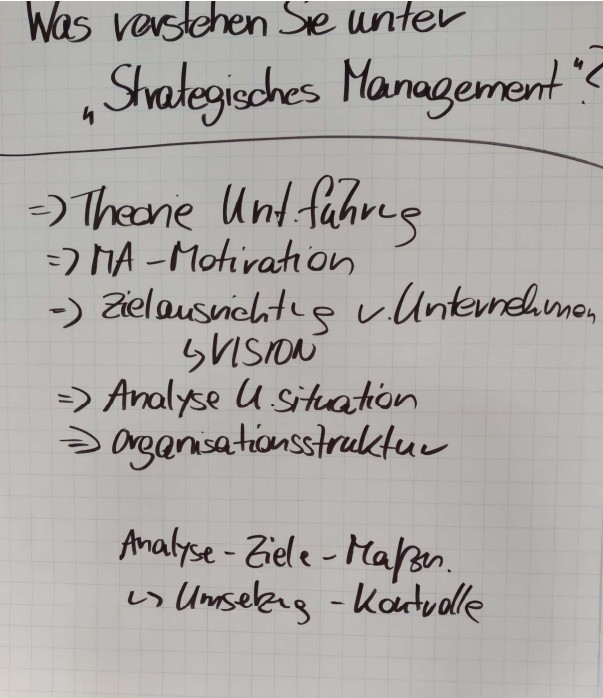 Was verstehen Sie unter
„Strategisches Management“?
=> Theorie Unt.führug
=> MA - Motivation
=> Zielausrichtug v. Unternehmen
↳ VISION
=> Analyse U.situation
=> Organisationsstruktur
Analyse - Ziele - Maßn.
↳ Umsetzug - Kontrolle